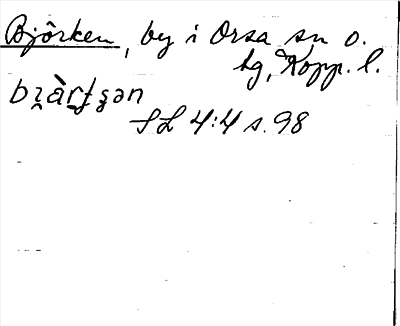 Björken, by i Orsa sn o.
tg, Kopp. l.
bı̯àrt̠ʂən
SL 4:4 s. 98